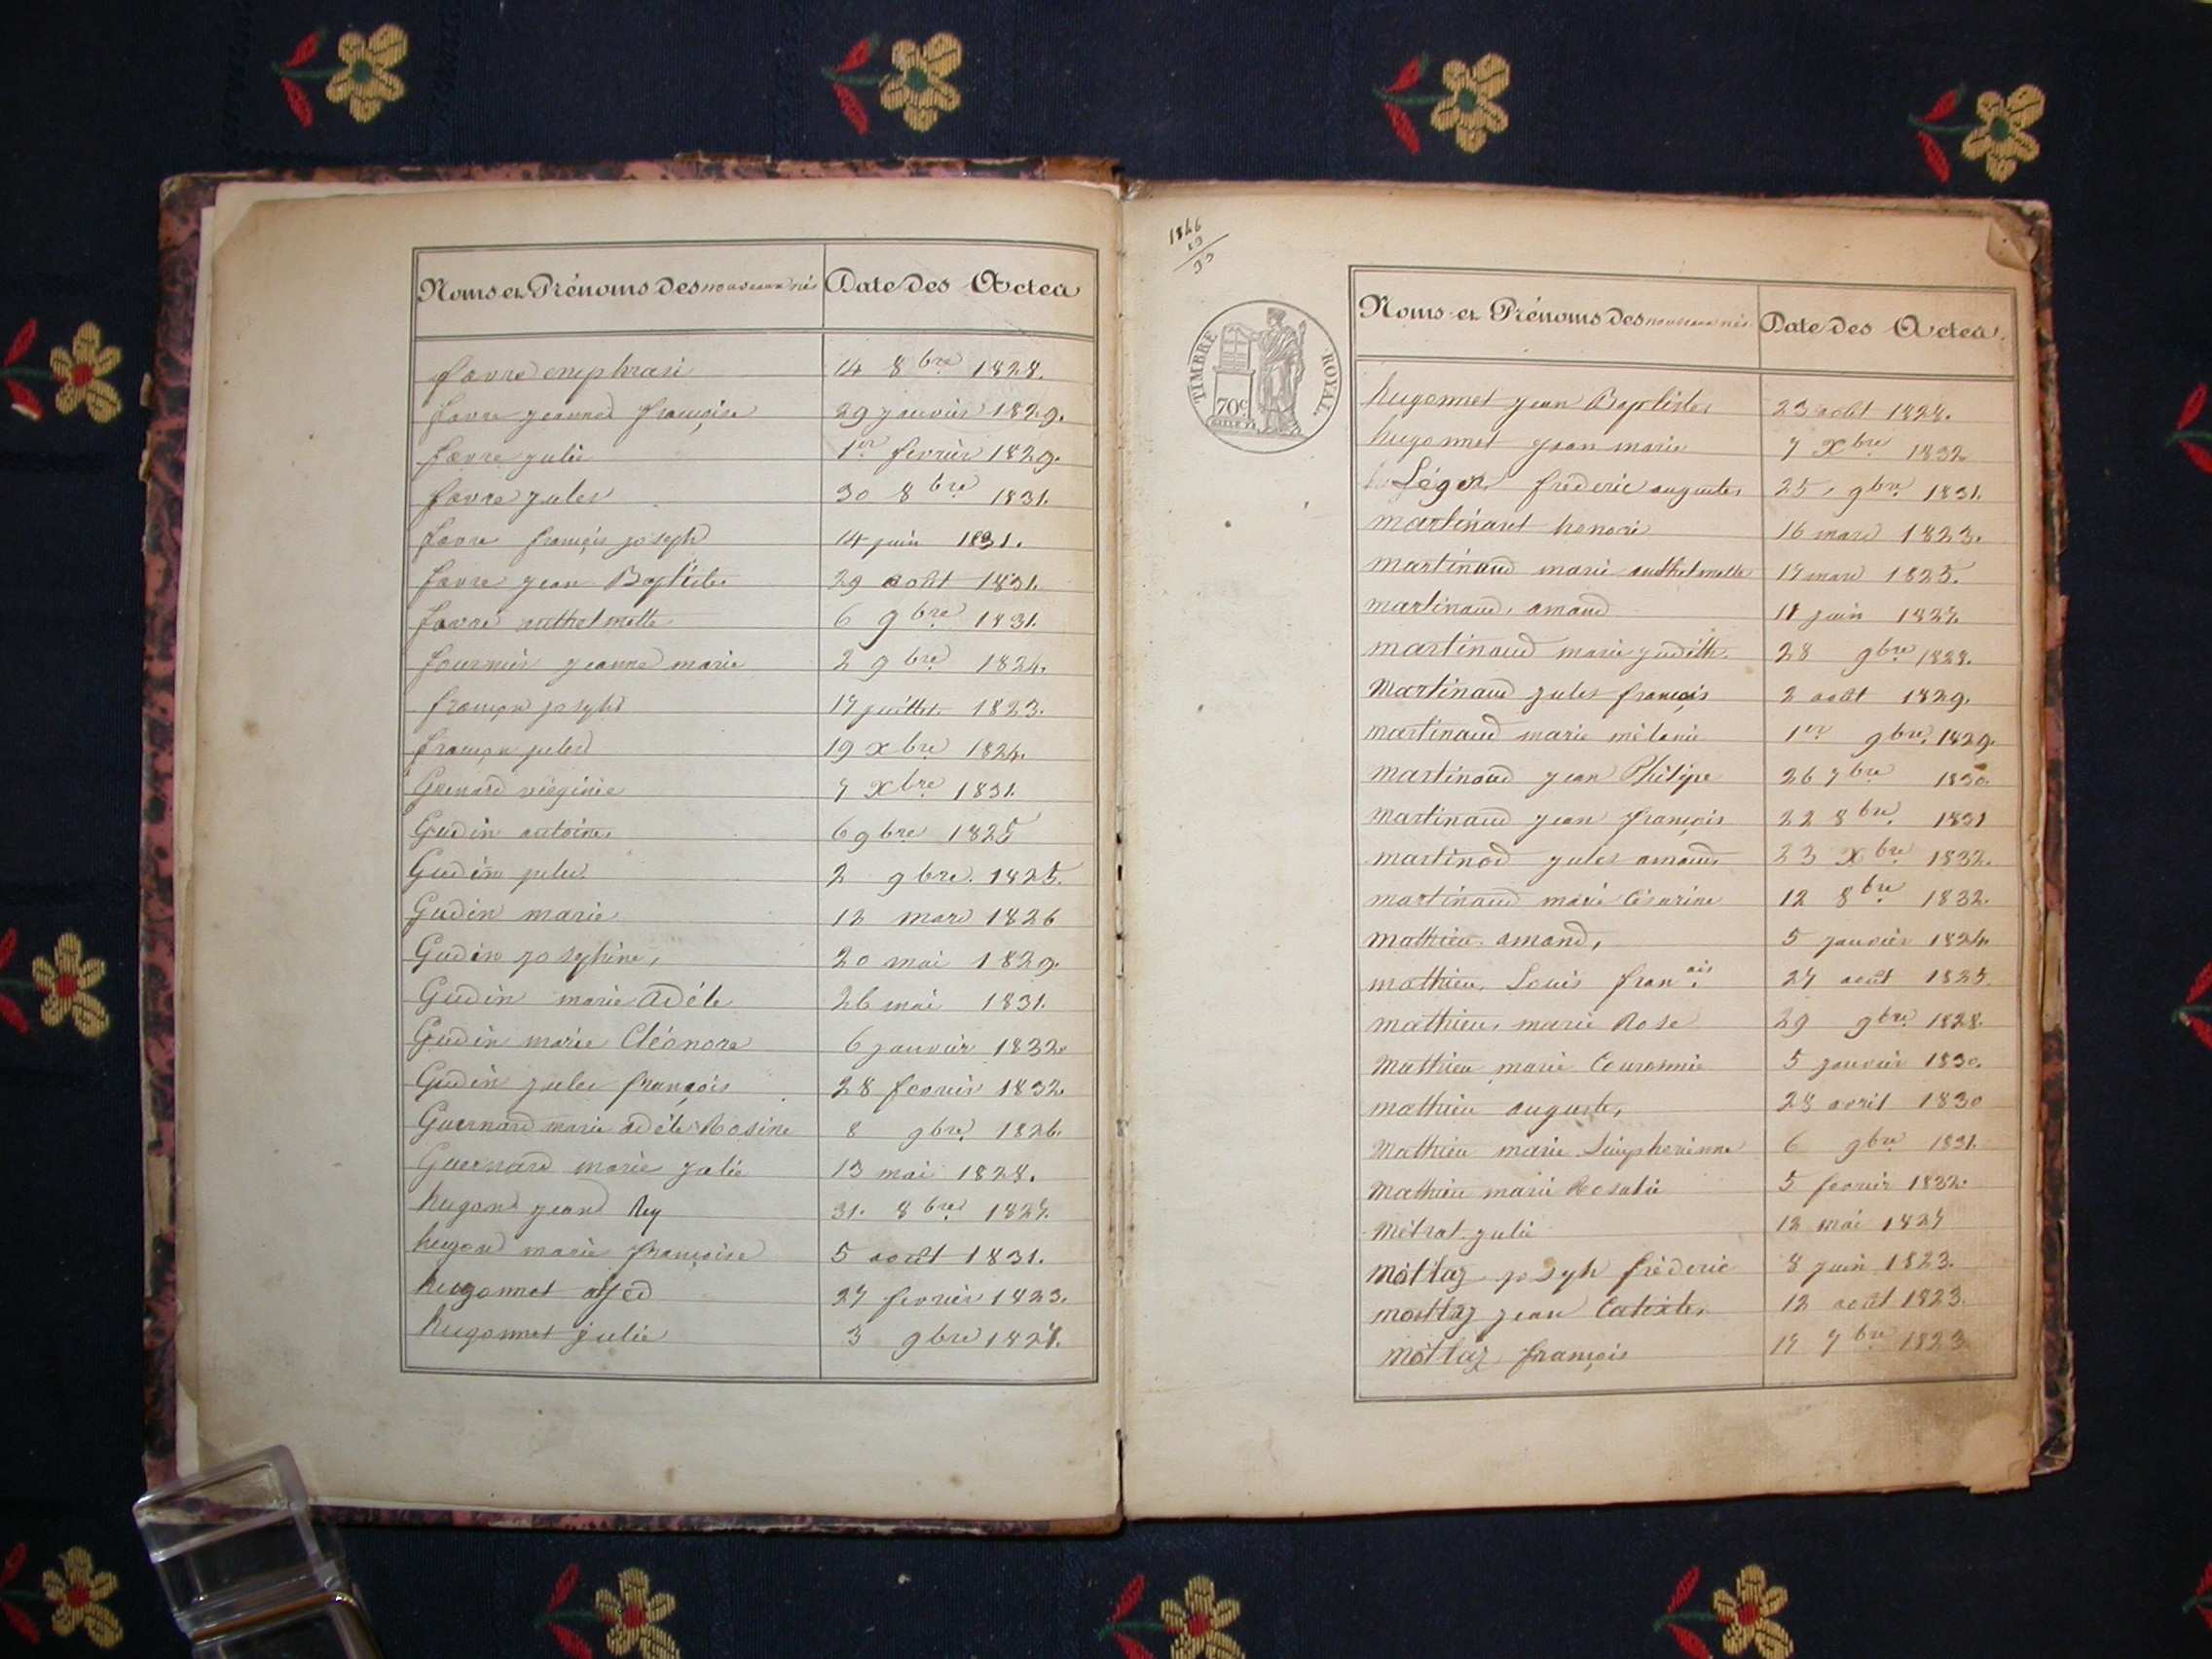 Noms et Prénoms des nouveaux nés Date des Actes
favre emphrasi 14 8bre 1828.
favre jeanne françoise 29 janvier 1829.
favre julie 1er fevrier 1829.
favre jules 30 8bre 1831.
favre françois joseph 14 juin 1831.
favre jean Baptiste 29 août 1831.
favre anthelmette 6 9bre 1831.
fournier jeanne marie 2 9bre 1824.
françon joseph 17 juillet 1823.
françon jules 19 xbre 1824.
Guenard virginie 7 Xbre 1831.
Gudin antoine 6 9bre 1825
Gudin jules 2 9bre. 1825.
Gudin marie 12 mars 1826
Gudin josephine, 20 mai 1829.
Gudin marie adéle 26 mai 1831.
Gudin marie Cléonore 6 janvier 1832.
Gudin jules françois 28 fevrier 1832.
Guernard marie adéle Rosine 8 9bre 1826.
Guernard marie julie 13 mai 1828.
hugon jean 31. 8bre 1827.
hugon marie françoise 5 août 1831.
hugonnet 27 fevrier 1823.
hugonnet julie 3 9bre 1827.
1846
13
TIMBRE ROYAL.
70c
Noms et Prénoms des nouveaux nés Date des Actes.
hugonnet jean Baptiste 23 août 1828.
hugonnet jean marie 7 Xbre 1832
Léger frederic auguste 25, 9bre 1831.
martinant honoré 16 mars 1823.
martinaud marie anthelmette 17 mars 1825.
martinaud, amand 11 juin 1827.
martinaud marie judith. 28 9bre 1828.
Martinaud jules françois 2 août 1829.
martinaud marie mélanie 1er 9bre, 1829.
martinaud jean Philipe 26 7bre 1830.
martinaud jean françois 22 8bre. 1831
martinod jules amand 23 Xbre 1832.
martinaud marie Césarine 12 8bre 1832.
mathieu amand, 5 janvier 1824
mathieu, Louis franais. 27 août 1825.
mathieu, marie Rose 29 9bre 1828.
Mathieu marie 5 janvier 1830.
mathieu auguste, 28 avril 1830
Mathieu marie Simphorienne 6 9bre 1831.
Mathieu marie Rosalie 5 fevrier 1832.
Métrat julie 12 mai 1827
Mottaz joseph fréderic 8 juin 1823.
mottaz jean Calixte, 12 août 1823.
mottaz françois 17 7bre 1823